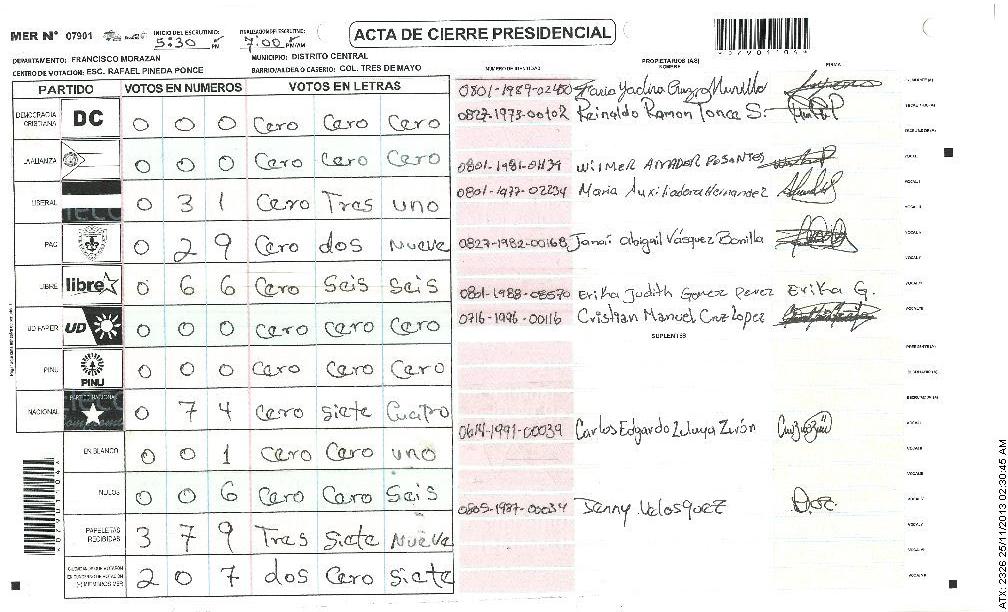 MER N° 07901
INICIO DEL ESCRUTINIO: 5:30 PM
7:00 PM/AM
ACTA DE CIERRE PRESIDENCIAL
07901104
DEPARTAMENTO: FRANCISCO MORAZAN
MUNICIPIO: DISTRITO CENTRAL
CENTRO DE VOTACIÓN: ESC. RAFAEL PINEDA PONCE
BARRIO/ALDEA O CASERIO: COL. TRES DE MAYO
NÚMERO DE IDENTIDAD
PROPIETARIOS (AS)
NOMBRE
FIRMA
PARTIDO VOTOS EN NUMEROS VOTOS EN LETRAS
DEMOCRACIA CRISTIANA DC 0 0 0 Cero Cero Cero
LA ALIANZA 0 0 0 Cero Cero Cero
LIBERAL 0 3 1 Cero Tres uno
PAC 0 2 9 Cero dos Nueve
LIBRE libre 0 6 6 Cero Seis Seis
UD FAPER UD 0 0 0 Cero Cero Cero
PINU PINU 0 0 0 Cero Cero Cero
NACIONAL PARTIDO NACIONAL 0 7 4 Cero Siete Cuatro
EN BLANCO 0 0 1 Cero Cero uno
NULOS 0 0 6 Cero Cero Seis
PAPELETAS RECIBIDAS 3 7 9 Tres Siete Nueve
2 0 7 dos Cero Siete
0801-1989-02400 Murillo
0827-1973-00102 Reinaldo Ramon Ponce S.
0801-1981- WilMER AMADOR POSANTES
0801-1977-02234 Maria Auxiliadora Hernandez
0827-1982-00168 Janai Abigail Vásquez Bonilla
0801-1988-08570 Erika Judith Gomez Perez Erika G.
0716-1996-00116 Cristian Manuel Cruz Lopez
SUPLENTES
0614-1991-00039 Carlos Edgardo Zelaya
0805-1987-00034 Denny Velasquez
ATX: 2326 25/11/2013 02:30:45 AM